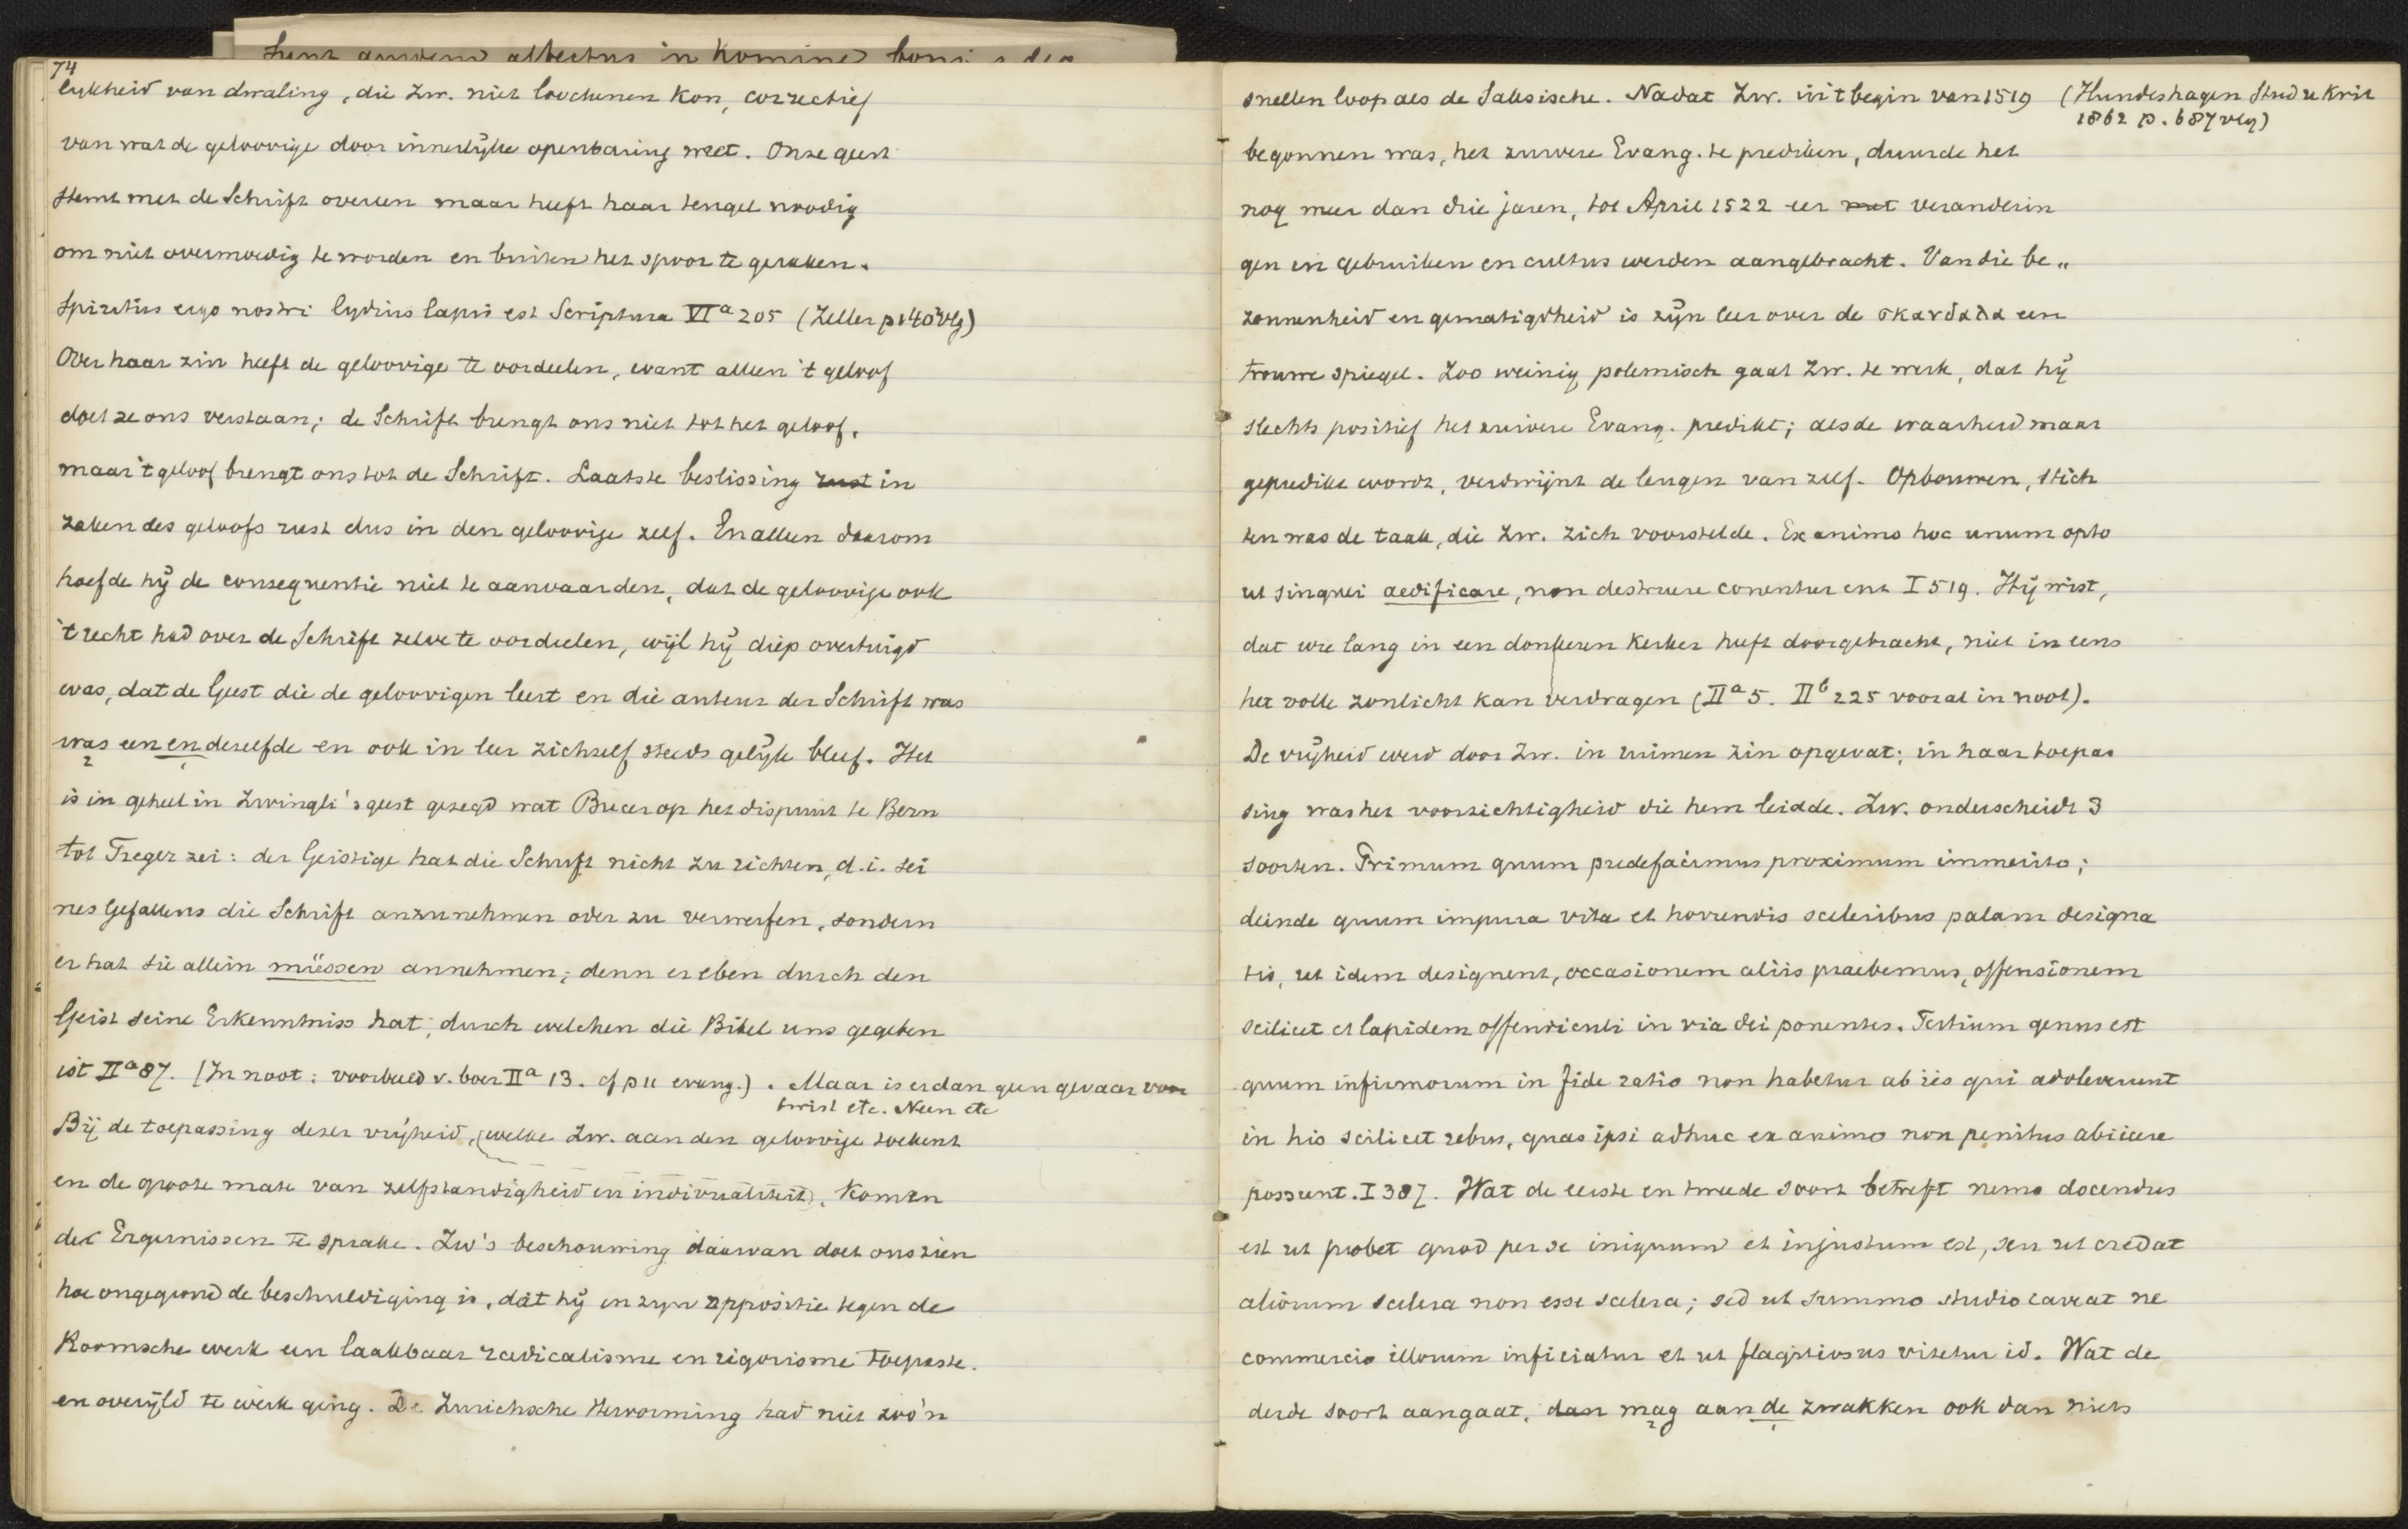 74
lykheid van dwaling, die Zw. niet loochenen kon, correctief
van wat de geloovige door innerlyke openbaring weet. Onze geest
stemt met de Schrift overeen maar heeft haar teugel noodig
om niet overmoedig te worden en buiten het spoor te geraken.
Spiritus ergo nostri lydius lapis est Scriptura VIa 205 (Zeller p 140 vlg)
Over haar zin heeft de geloovige te oordeelen, want alleen 't geloof
doet ze ons verstaan; de Schrift brengt ons niet tot het geloof,
maar 't geloof brengt ons tot de Schrift. Laatste beslissing rust in
zaken des geloofs rust dus in den geloovige zelf. En alleen daarom
hoefde hij de consequentie niet te aanvaarden, dat de geloovige ook
't recht had over de Schrift zelve te oordeelen, wijl hij diep overtuigd
was, dat de Geest die de geloovigen leert en die auteur der Schrift was
was een en dezelfde en ook in leer zichzelf steeds gelijk bleef. Het
is in geheel in Zwingli's geest gezegd wat Bucer op het dispuut te Bern
tot Treger zei: der Geistige hat die Schrift nicht zu richten, d.i. sei
nes Gefallens die Schrift anzunehmen oder zu verwerfen, sondern
er hat sie allein müssen annehmen; denn er eben durch den
Geist seine Erkenntniss hat, durch welchen die Bibel uns gegeben
ist IIa 87. (In noot: voorbeeld v. boer IIa 13. cf p 11 evang.). Maar is er dan geen gevaar voor
twist etc. Neen etc
Bij de toepassing dezer vrijheid, (welke Zw. aan den geloovige toekent
en de groote mate van zelfstandigheid en individualiteit), komen
de Ergernissen te sprake. Zw's beschouwing daarvan doet ons zien
hoe ongegrond de beschuldiging is, dat hij in zyn oppositie tegen de
Roomsche kerk een laakbaar radicalisme en rigorisme toepaste.
en overijld te werk ging. De Zurichsche Hervorming had niet zoo'n
snellen loop als de Saksische. Nadat Zw. uit begin van 1519 (Hundeshagen Stud u Krit
1862 p. 687 vlg)
begonnen was, het zuivere Evang. te prediken, duurde het
nog meer dan drie jaren, tot April 1522 eer met veranderin
gen in gebruiken en cultus werden aangebracht. Van die be„
zonnenheid en gematigdheid is zijn leer over de σκανδαλα een
trouwe spiegel. Zoo weinig polemisch gaat Zw. te werk, dat hij
slechts positief het zuivere Evang. predikt; als de waarheid maar
gepredikt wordt, verdwijnt de leugen van zelf. Opbouwen, stich
ten was de taak, die Zw. zich voorstelde. Ex animo hoc unum opto
ut singuli aedificare, non destruere conentur enz I 519. Hij wist,
dat wie lang in een donkeren kerker heeft doorgebracht, niet in eens
het volle zonlicht kan verdragen (IIa 5. IIb 225 vooral in noot).
De vrijheid werd door Zw. in ruimen zin opgevat; in haar toepas
sing was het voorzichtigheid die hem leidde. Zw. onderscheidt 3
soorten. Primum quum praedefacimus proximum immerito;
deinde quum impura vita et horrendis sceleribus palam designa
tis, ut idem designent, occasionem aliis praebemus, offensionem
scilicet et lapidem offendiculi in via dei ponentes. Tertium genus est
quum infirmorum in fide ratio non habetur ab iis qui adoleverunt
in his scilicet rebus, quas ipsi adhuc ex animo non penitus abiicere
possunt. I 387. Wat de eerste en tweede soort betreft nemo docendus
est ut probet quod per se iniquum et injustum est, seu ut credat
aliorum scelera non esse scelera; sed ut summo studio caveat ne
commercio illorum inficiatur et ut flagitiosus vitetur id. Wat de
derde soort aangaat, dan mag aan de zwakken ook dan niets